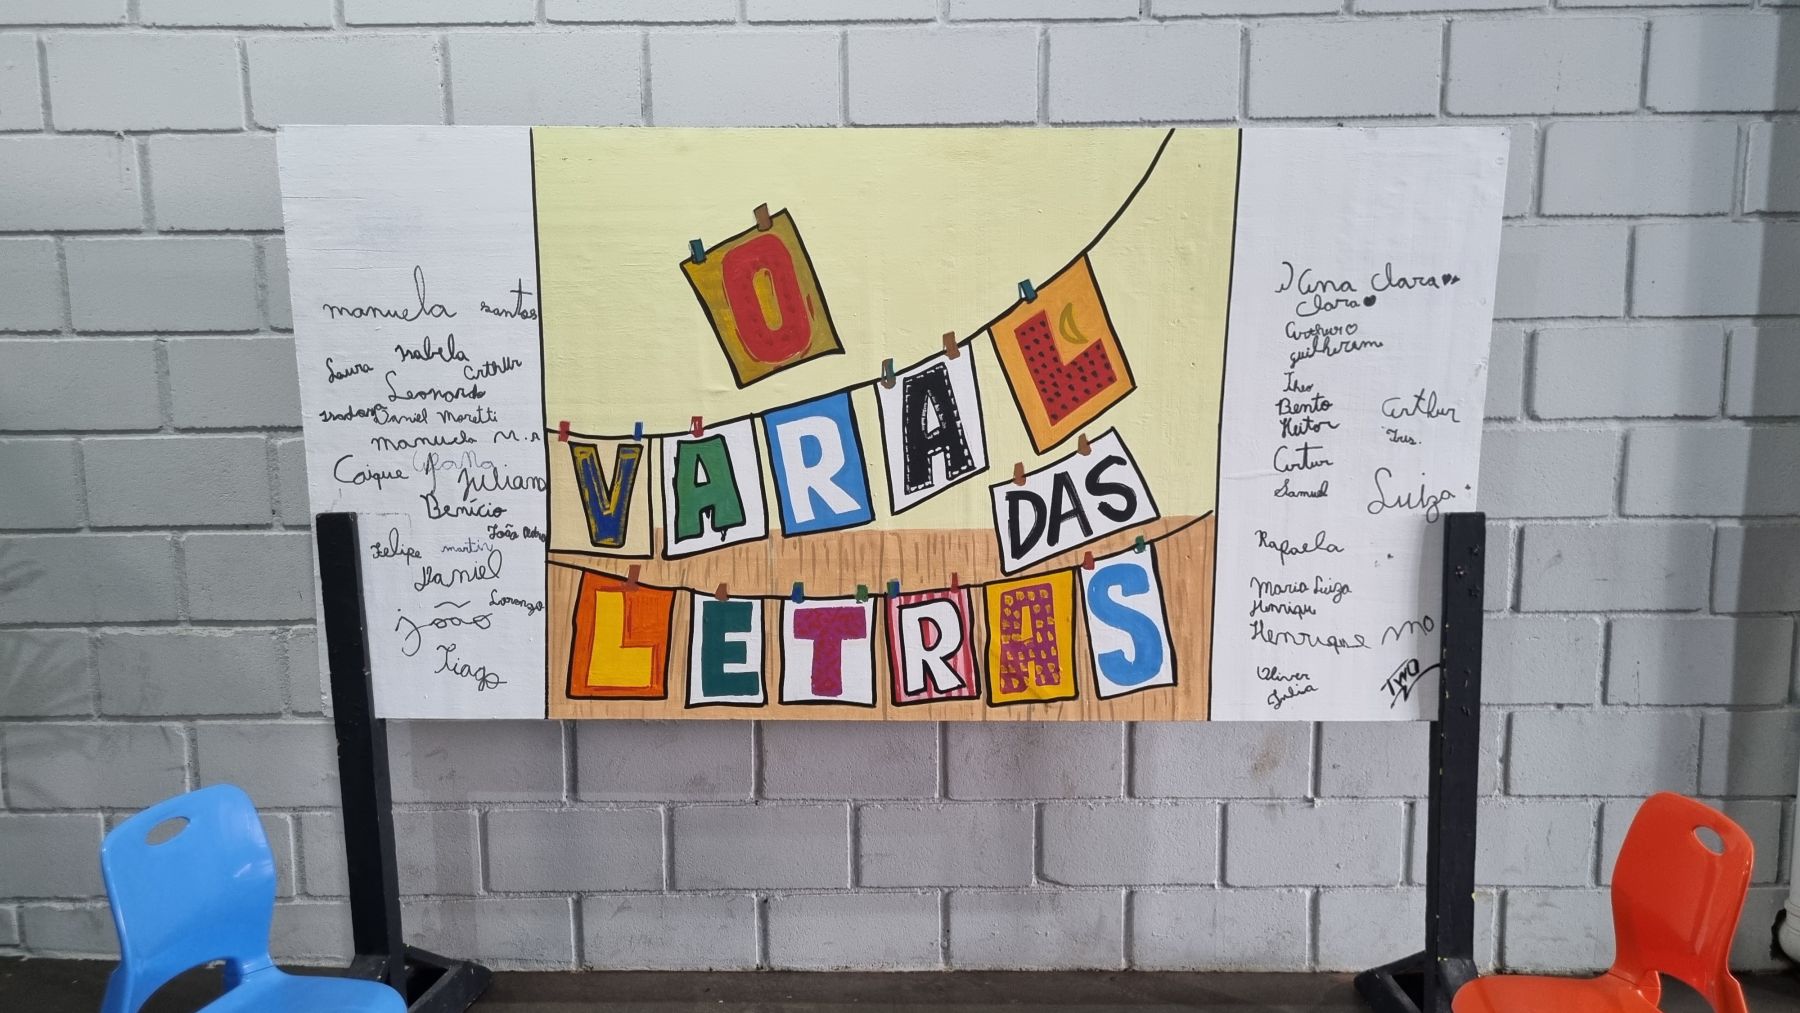 O
VARAL
DAS
LETRAS
manuela santos
Isabela
Laura Arthur
Leonardo
Isadora Daniel Moretti
manuela M.R
Caique Juliano
Benício
João Pedro
Felipe martin
Daniel
Lorenzo
joão
Tiago
Ana Clara
Clara
Arthur
guilherme
Theo
Bento
Heitor
Arthur
Artur
Samuel
Luiza
Rafaela
Maria Luiza
Henrique
Henrique Mo
Oliver
Julia